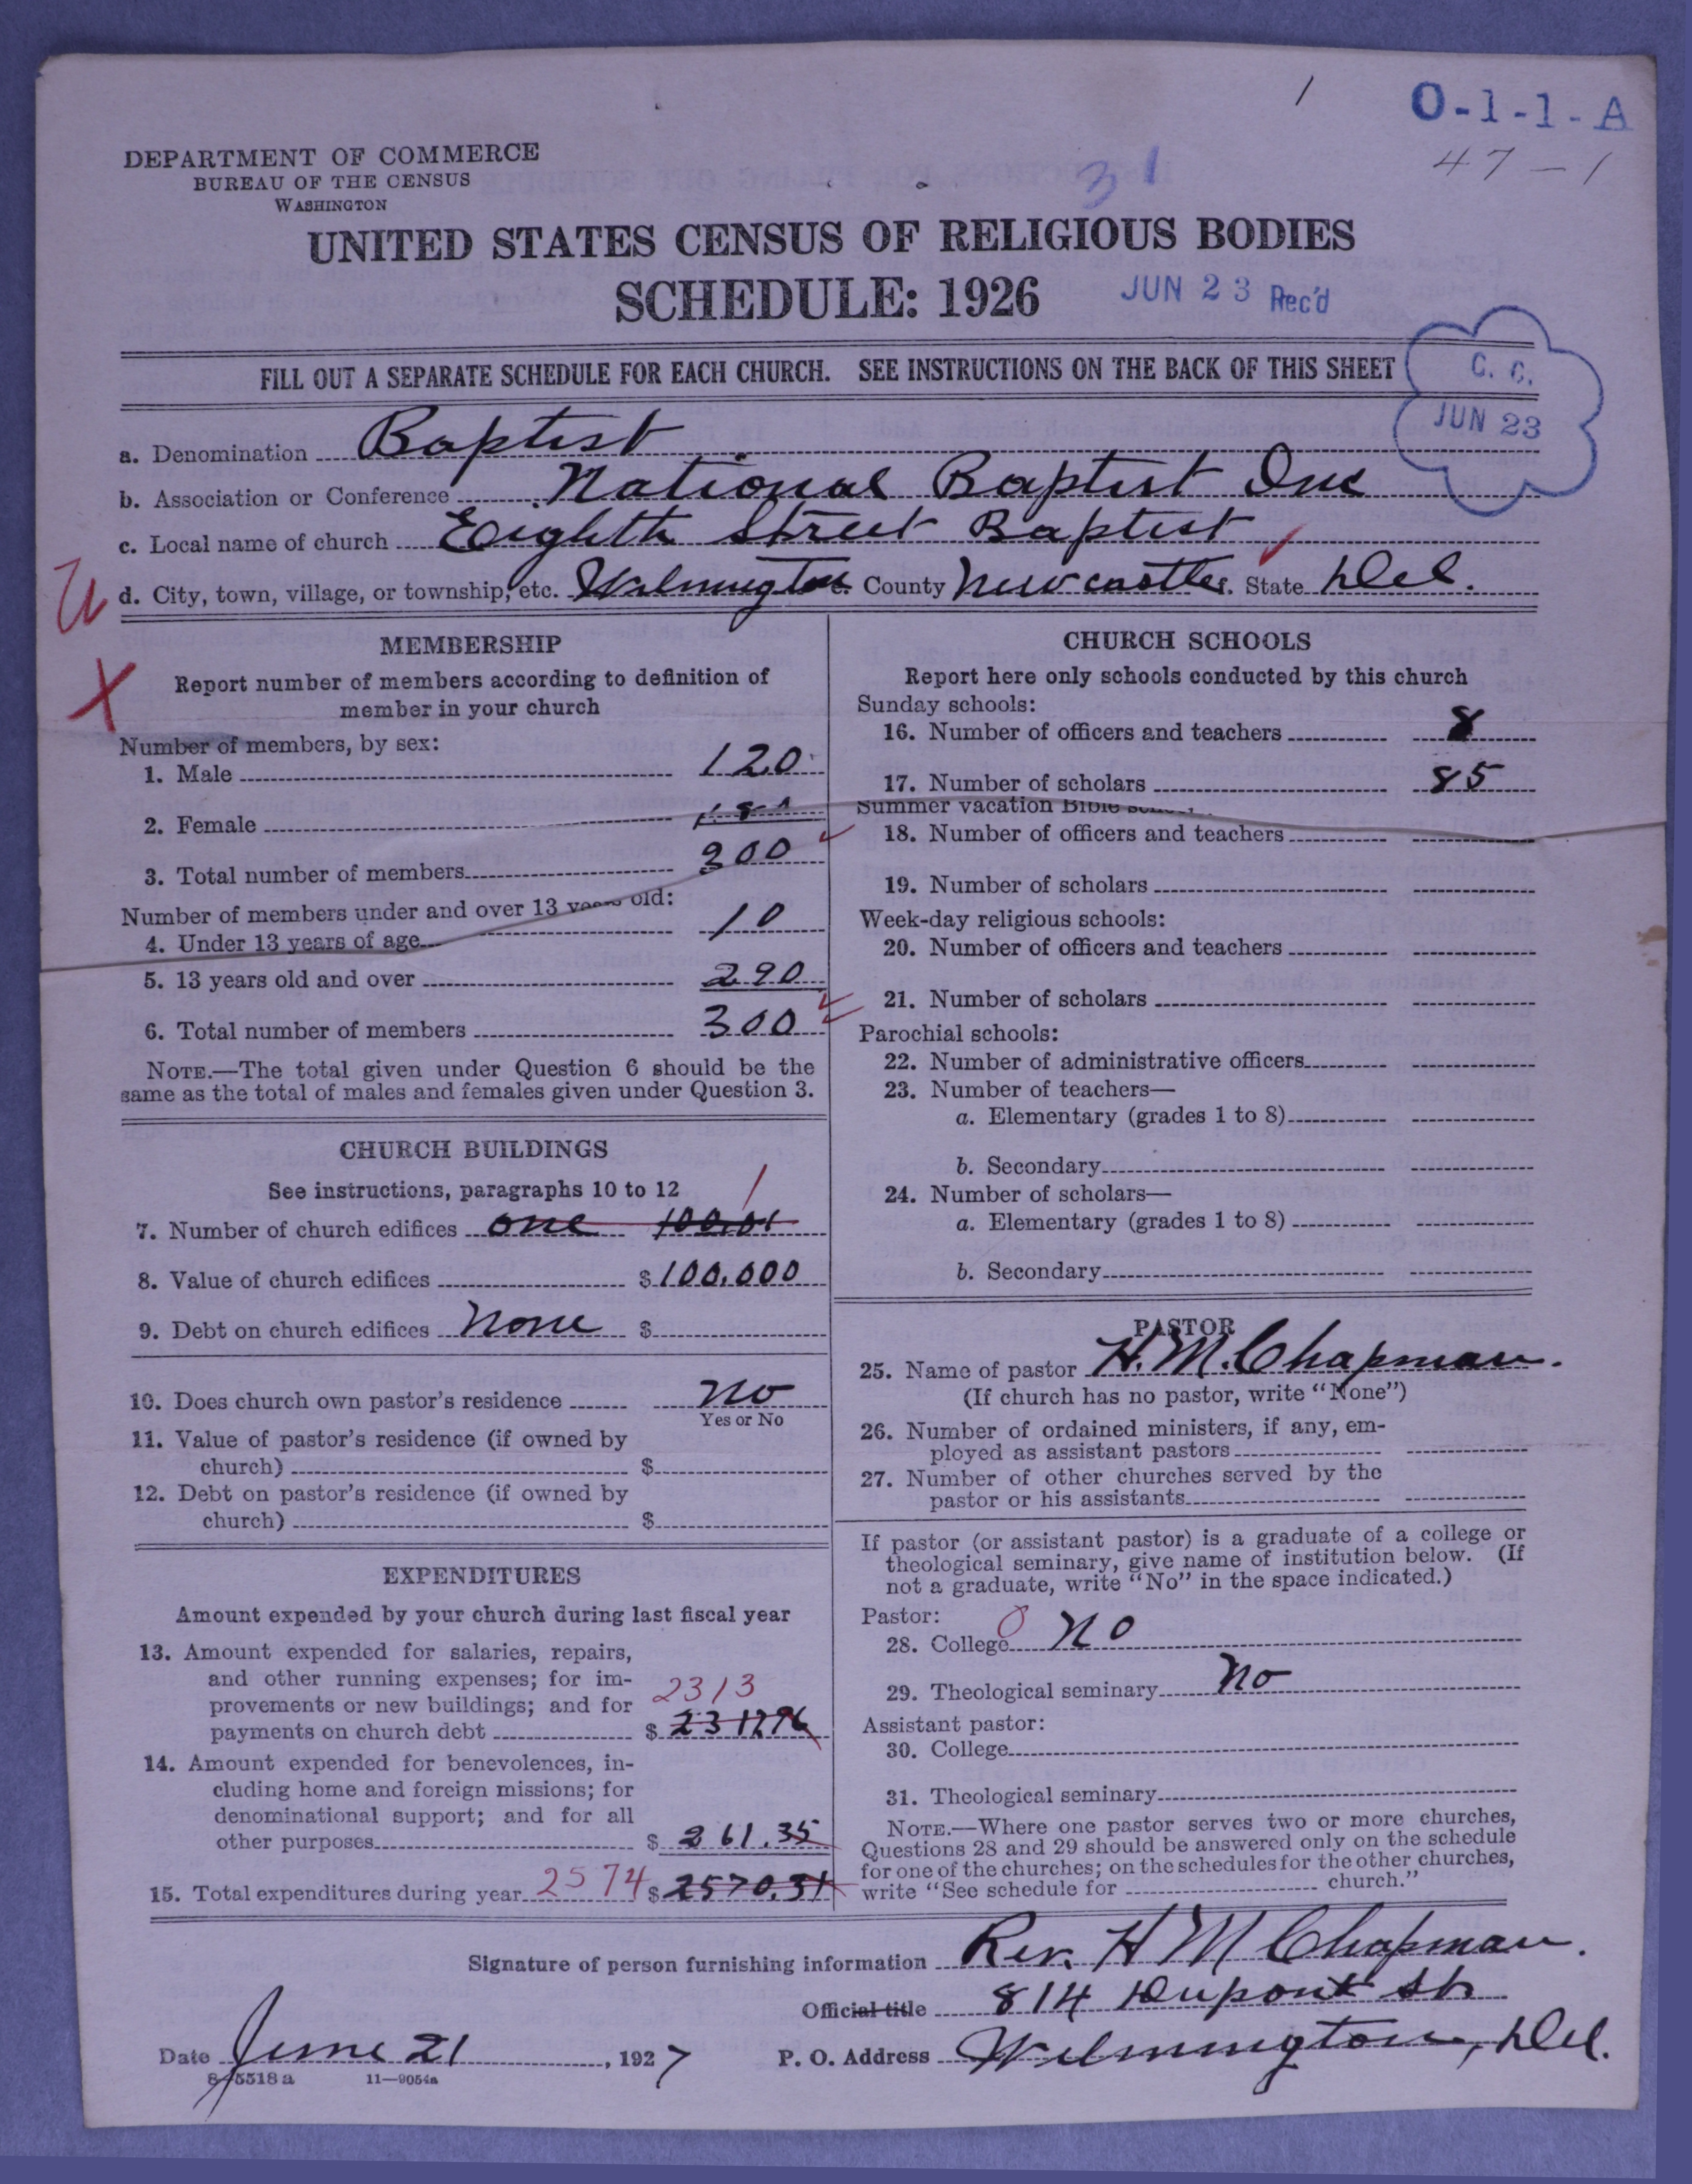 O-1-1-A
47-1
31
DEPARTMENT OF COMMERCE
BUREAU OF THE CENSUS
WASHINGTON
UNITED STATES CENSUS OF RELIGIOUS BODIES
SCHEDULE: 1926
JUN 23 Rec'd
FILL OUT A SEPARATE SCHEDULE FOR EACH CHURCH. SEE INSTRUCTIONS ON THE BACK OF THIS SHEET
C. C.
JUN 23
a. Denomination Baptist
b. Association or Conference National Baptist Inc
c. Local name of church Eighth Street Baptist
d. City, town, village, or township, etc. Wilmington County Newcastle State Del.
MEMBERSHIP
Report number of members according to definition of
member in your church
Number of members, by sex:
1. Male 120
2. Female
3. Total number of members 300
Number of members under and over 13 years old:
4. Under 13 years of age 10
5. 13 years old and over 290
6. Total number of members 300
NOTE.—The total given under Question 6 should be the
same as the total of males and females given under Question 3.
CHURCH BUILDINGS
See instructions, paragraphs 10 to 12
1
7. Number of church edifices one
8. Value of church edifices $100,000
9. Debt on church edifices None $
10. Does church own pastor's residence No
Yes or No
11. Value of pastor's residence (if owned by
church) $
12. Debt on pastor's residence (if owned by
church) $
EXPENDITURES
Amount expended by your church during last fiscal year
13. Amount expended for salaries, repairs,
and other running expenses; for im-
provements or new buildings; and for 2313
payments on church debt $ 2312.96
14. Amount expended for benevolences, in-
cluding home and foreign missions; for
denominational support; and for all
other purposes $ 261.35
15. Total expenditures during year 2574 $ 2570.31
CHURCH SCHOOLS
Report here only schools conducted by this church
Sunday schools:
16. Number of officers and teachers 8
17. Number of scholars 85
Summer vacation Bible
18. Number of officers and teachers
19. Number of scholars
Week-day religious schools:
20. Number of officers and teachers
21. Number of scholars
Parochial schools:
22. Number of administrative officers
23. Number of teachers—
a. Elementary (grades 1 to 8)
b. Secondary
24. Number of scholars—
a. Elementary (grades 1 to 8)
b. Secondary
PASTOR
25. Name of pastor H. M. Chapman.
(If church has no pastor, write "None")
26. Number of ordained ministers, if any, em-
ployed as assistant pastors
27. Number of other churches served by the
pastor or his assistants
If pastor (or assistant pastor) is a graduate of a college or
theological seminary, give name of institution below. (If
not a graduate, write "No" in the space indicated.)
Pastor:
28. College 0 No
29. Theological seminary No
Assistant pastor:
30. College
31. Theological seminary
NOTE.—Where one pastor serves two or more churches,
Questions 28 and 29 should be answered only on the schedule
for one of the churches; on the schedules for the other churches,
write "See schedule for church."
Signature of person furnishing information Rev. H M Chapman.
Official title 814 Dupont St
Date June 21, 1927 P. O. Address Wilmington, Del.
8-5518a 11-9054a